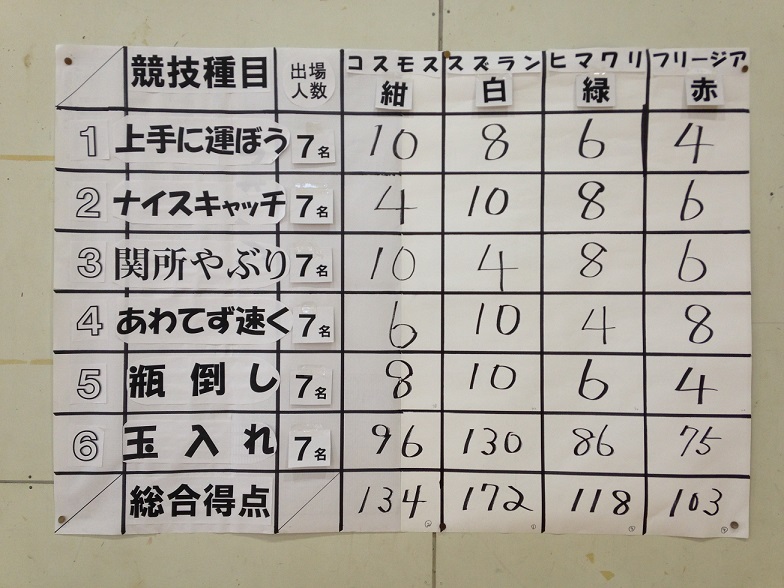 競技種目 出場人数 コスモス 紺 スズラン 白 ヒマワリ 緑 フリージア 赤
1 上手に運ぼう 7名 10 8 6 4
2 ナイスキャッチ 7名 4 10 8 6
3 関所やぶり 7名 10 4 8 6
4 あわてず速く 7名 6 10 4 8
5 瓶倒し 7名 8 10 6 4
6 玉入れ 7名 96 130 86 75
総合得点 134 172 118 103